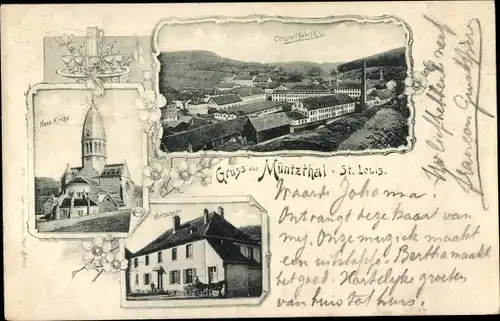 Crystallfabrik
Neue Kirche
Gruss aus Müntzthal - St. Louis.
Wirtschaft
Waarde Johanna!
Ontvangt deze kaart van
my. Onze muziek maakt
een uitstapje. Bertha maakt
het goed. Hartelyke groeten
van huis tot huis.
Uw liefhebbende neef